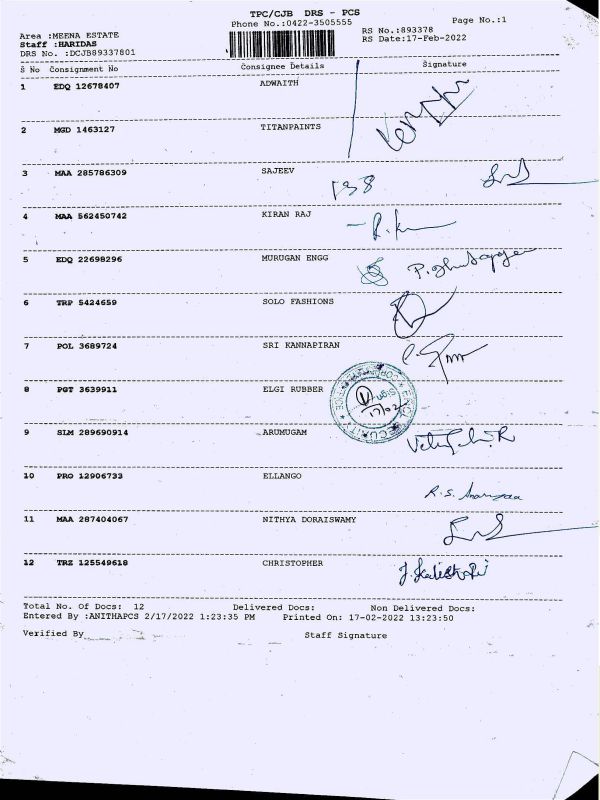 TPC/CJB DRS - PCS
Phone No.:0422-3505555
Page No.:1
Area :MEENA ESTATE
RS No.:893378
Staff :HARIDAS
RS Date:17-Feb-2022
DRS No. :DCJB89337801
S No Consignment No Consignee Details Signature
1 EDQ 12678407 ADWAITH
2 MGD 1463127 TITANPAINTS
3 MAA 285786309 SAJEEV
138
4 MAA 562450742 KIRAN RAJ
5 EDQ 22698296 MURUGAN ENGG
6 TRP 5424659 SOLO FASHIONS
7 POL 3689724 SRI KANNAPIRAN
8 PGT 3639911 ELGI RUBBER
SECURITY
17/02
9 SLM 289690914 ARUMUGAM
10 PRO 12906733 ELLANGO
11 MAA 287404067 NITHYA DORAISWAMY
12 TRZ 125549618 CHRISTOPHER
Total No. Of Docs: 12 Delivered Docs: Non Delivered Docs:
Entered By :ANITHAPCS 2/17/2022 1:23:35 PM Printed On: 17-02-2022 13:23:50
Verified By Staff Signature